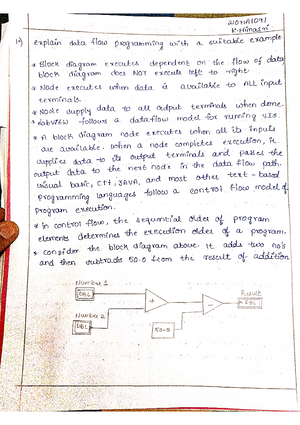 K. Himasri
1) explain data flow programming with a suitable example
* Block diagram executes dependent on the flow of data
block diagram does NOT execute left to right.
* Node executes when data is available to ALL input
terminals.
* Node supply data to all output terminals when done.
* Labview follows a dataflow model for running VIs.
* A block diagram node executes when all its inputs
are available. When a node completes execution, it
supplies data to its output terminals and passes the
output data to the next node in the data flow path.
visual basic, C++, JAVA, and most other text-based
programming languages follow a control flow model of
program execution.
* In control flow, the sequential order of program
elements determines the execution order of a program.
* Consider the block diagram above. It adds two no's
and then subtracts 50.0 from the result of addition
Number 1
DBL
Number 2
DBL
+
-
50.0
Result
DBL